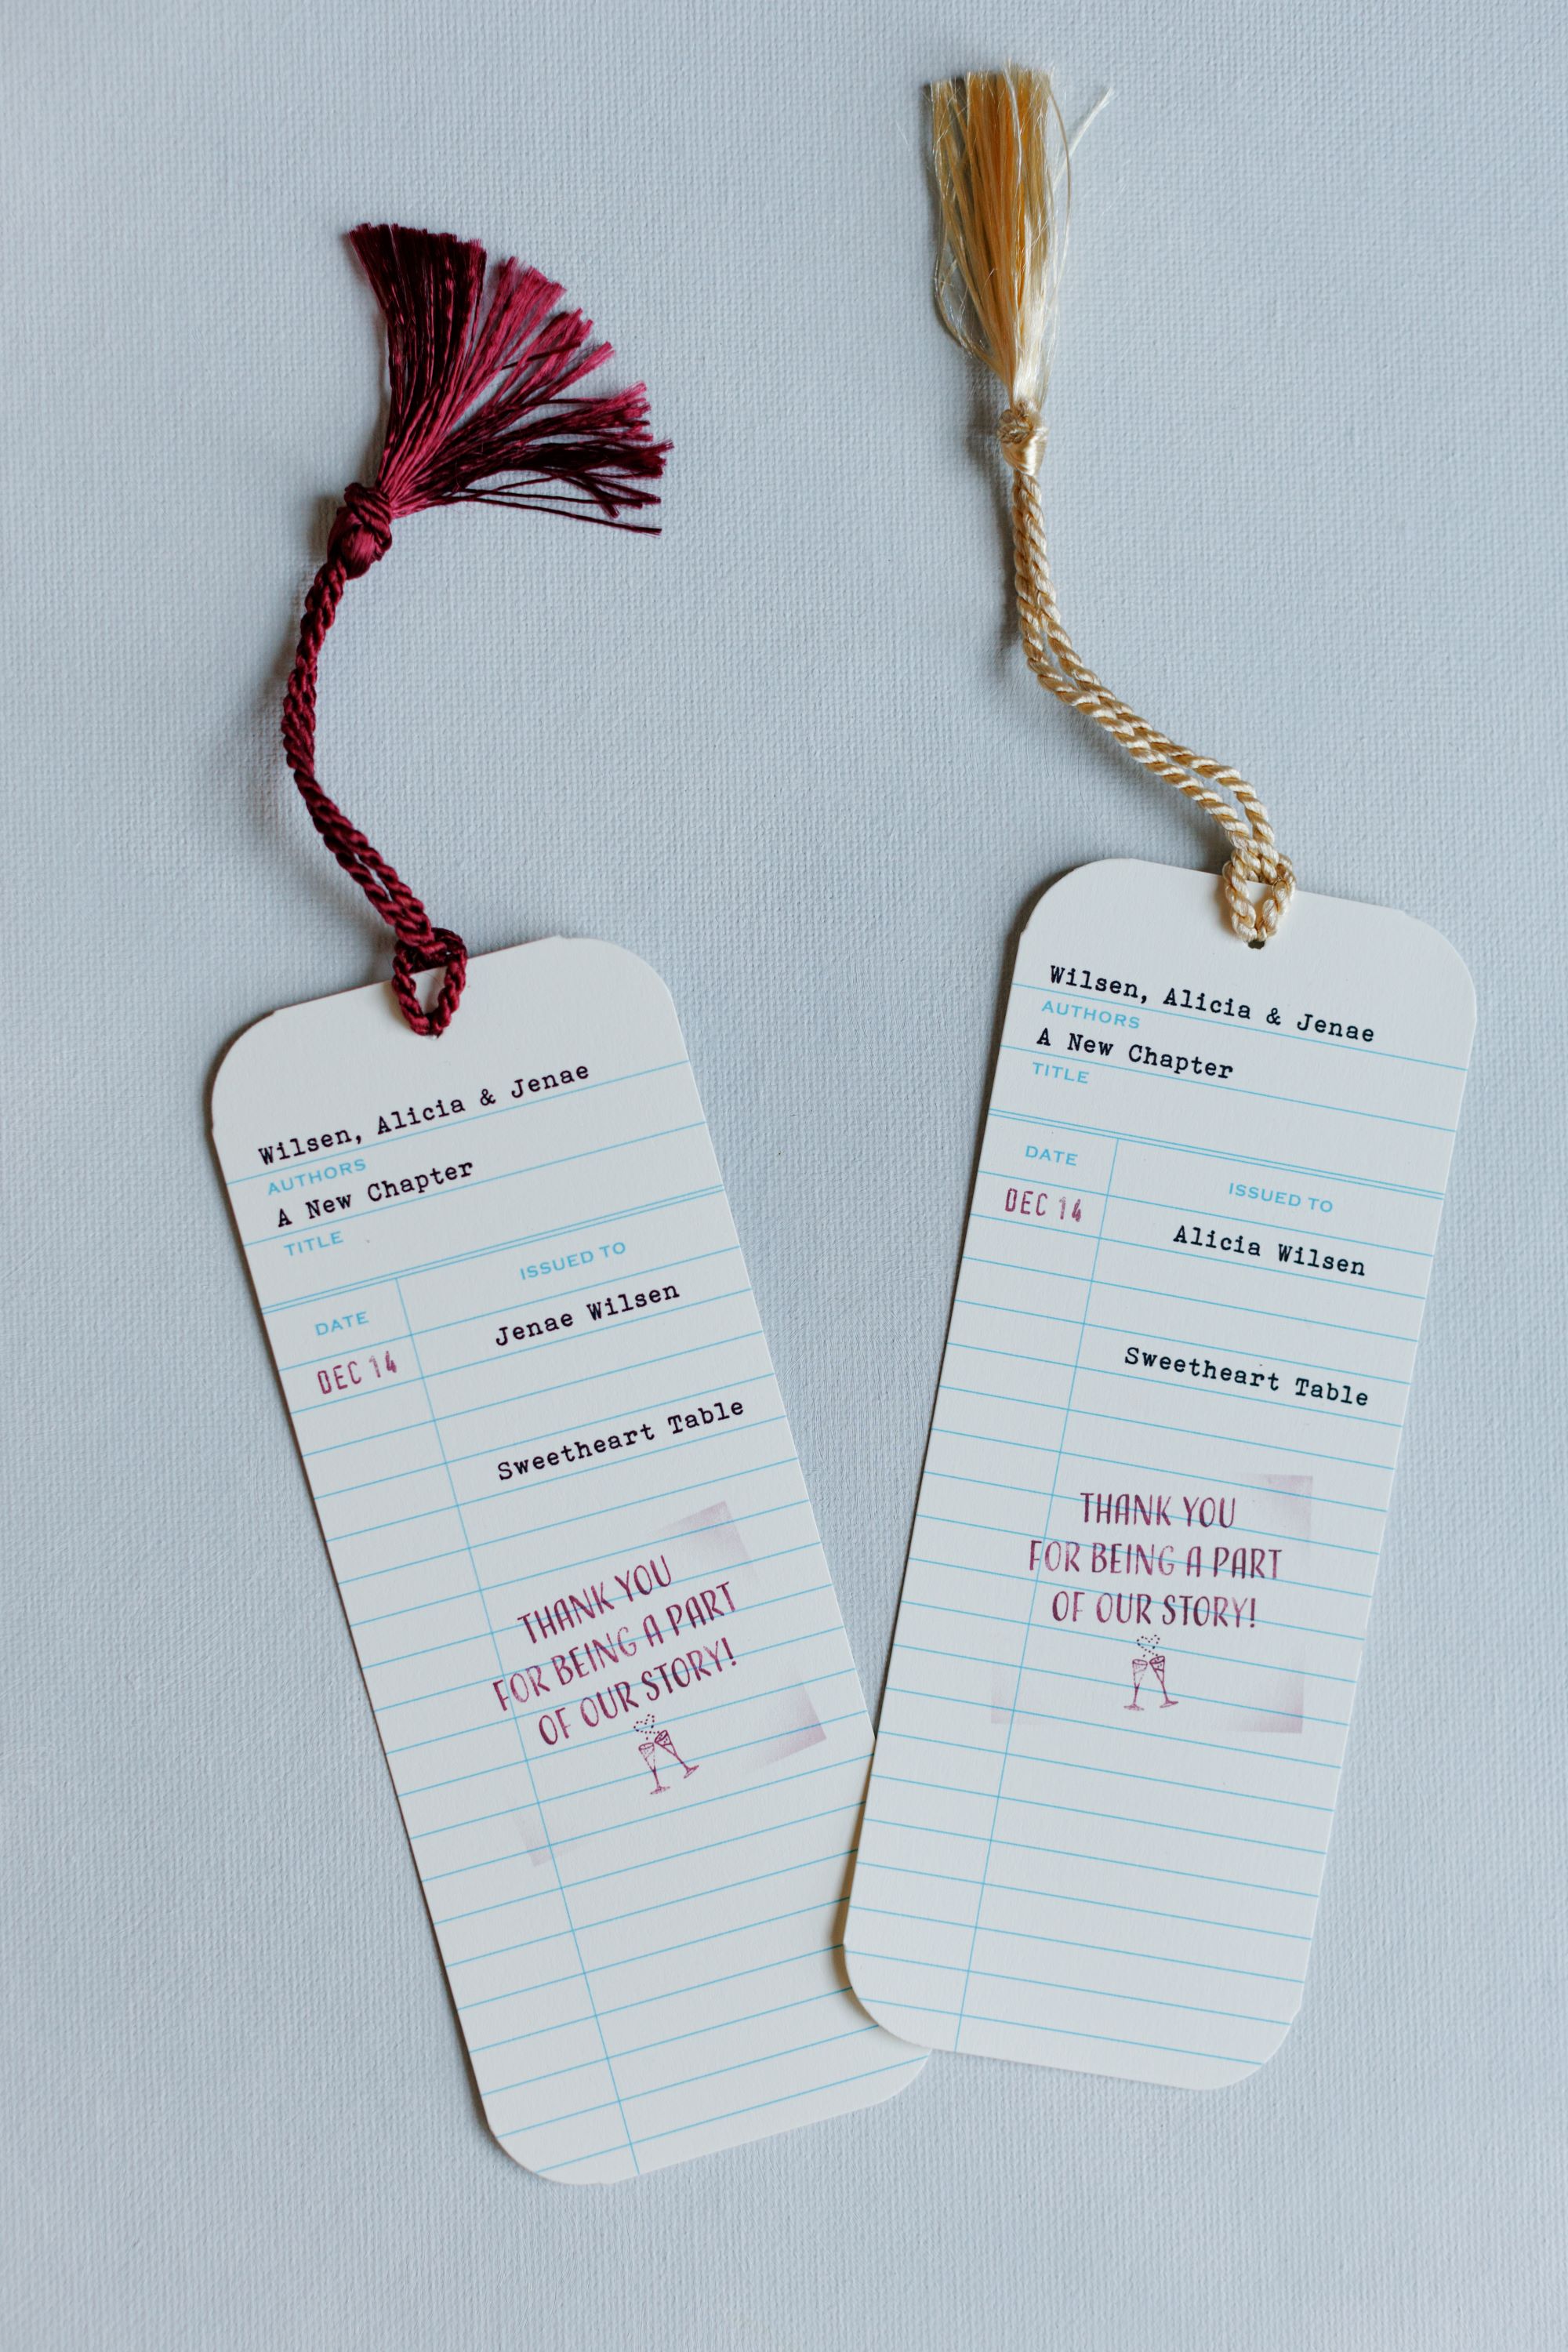 Wilsen, Alicia & Jenae
AUTHORS
A New Chapter
TITLE
DATE
ISSUED TO
DEC 14
Jenae Wilsen
Sweetheart Table
THANK YOU
FOR BEING A PART
OF OUR STORY!
Wilsen, Alicia & Jenae
AUTHORS
A New Chapter
TITLE
DATE
ISSUED TO
DEC 14
Alicia Wilsen
Sweetheart Table
THANK YOU
FOR BEING A PART
OF OUR STORY!